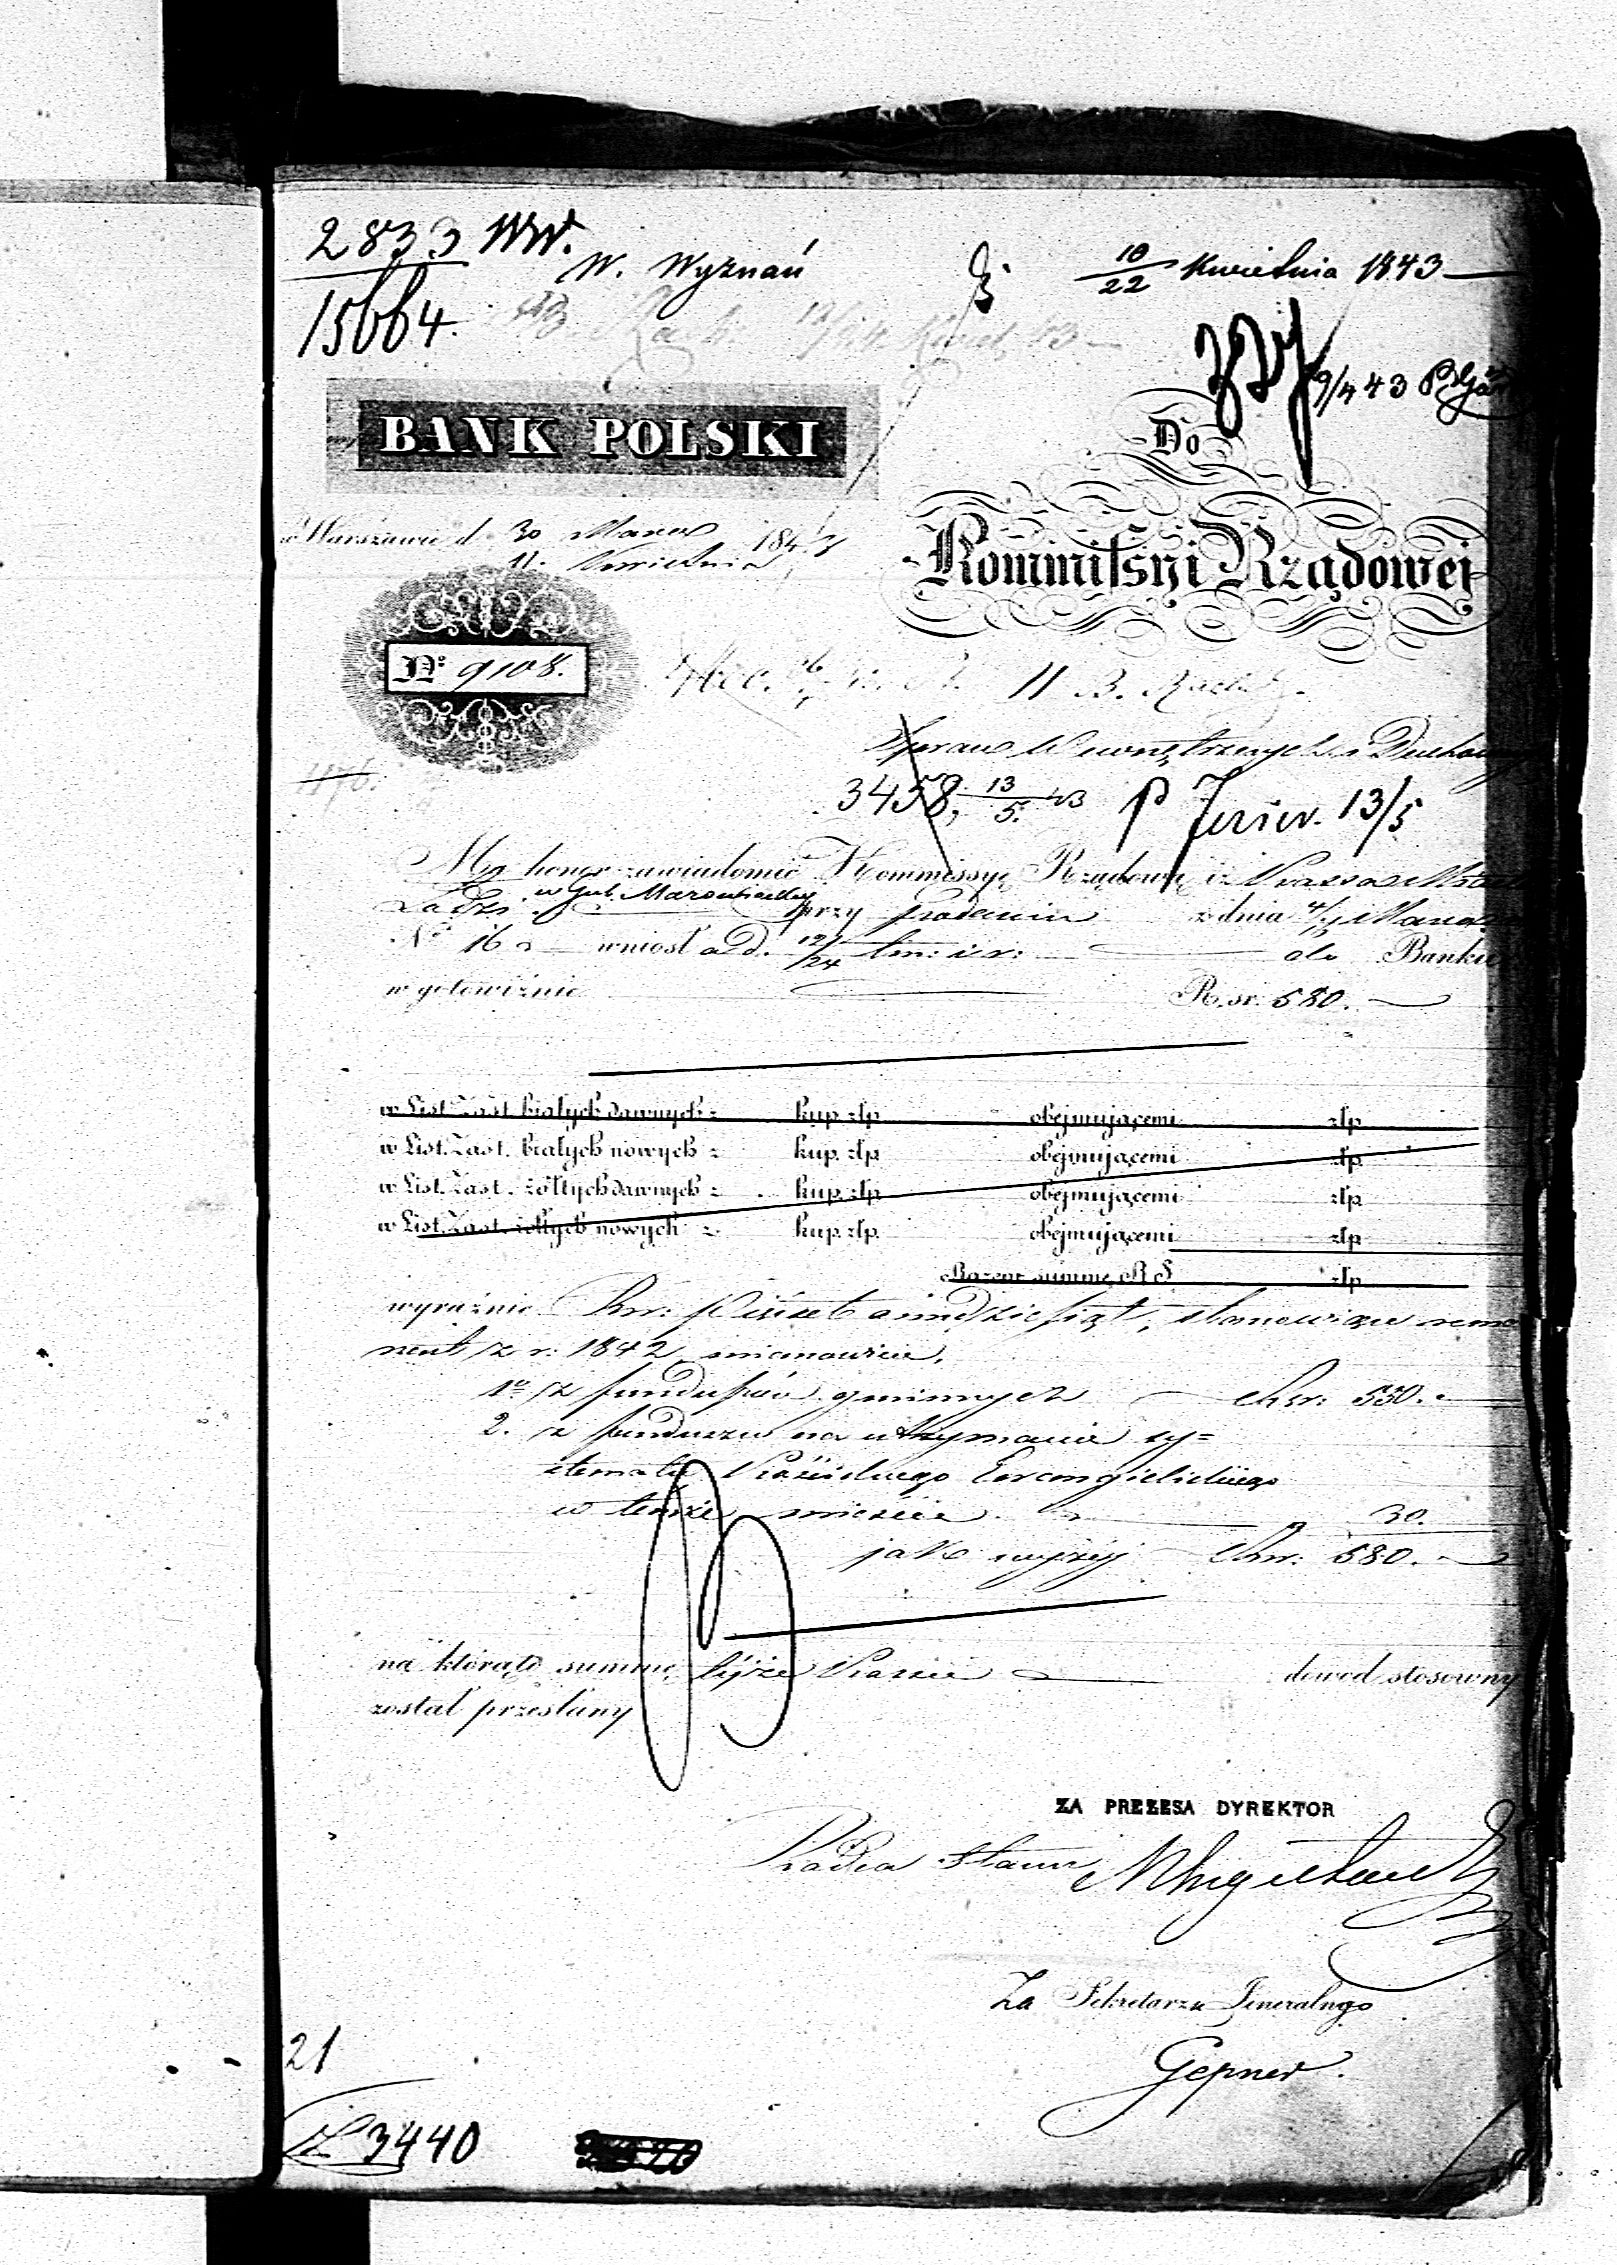 2833 WW.
15664.
W. Wyznań
10/22 Kwietnia 1843
9/4 43
BANK POLSKI
Do
Kommissyi Rządowej
w Warszawie d. 30 Marca
11. Kwietnia 1843
Nº 9108.
11 B.
Spraw Wewnętrznych i Duchow
3458, 13/5. 43 13/5
Ma honor zawiadomić Kommissyę Rządową iż Kassa Miasta
Łodzi w Gub. Mazowieckiej przy podaniu z dnia 4/ Marca
Nº 16 wniosł a d. 12/24 tm: i r: do Banku
w gotowiźnie R. sr. 580.
w List. Zast. białych dawnych z kup. złp. obejmującemi złp.
w List. Zast. białych nowych z kup. złp. obejmującemi złp.
w List. Zast. żółtych dawnych z kup. złp. obejmującemi złp.
w List. Zast. żółtych nowych z kup. złp. obejmującemi złp.
Razem summę R S. złp.
wyraźnie Rsr: Pięćset ośmdziesiąt, stanowiące rema
nent z r: 1842 mianowicie.
1º z funduszów gminnych Rsr: 550.
2. z funduszu na utrzymanie sy=
stematu Kościelnego Ewangielickiego
w temże mieście 30.
jak wyżej Rsr: 580.
na którąto summę tejże Kassie dowód stosowny
został przesłany
ZA PREZESA DYREKTOR
Radca Stanu
Za Sekretarza Jeneralnego
Gepner.
21
3440